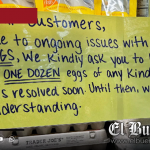 Customers,
e to ongoing issues with
GS, We Kindly ask you to
ONE DOZEN eggs of any Kind
s resolved soon. Until then, w
derstanding.
TRADER JOE'S
El Bu